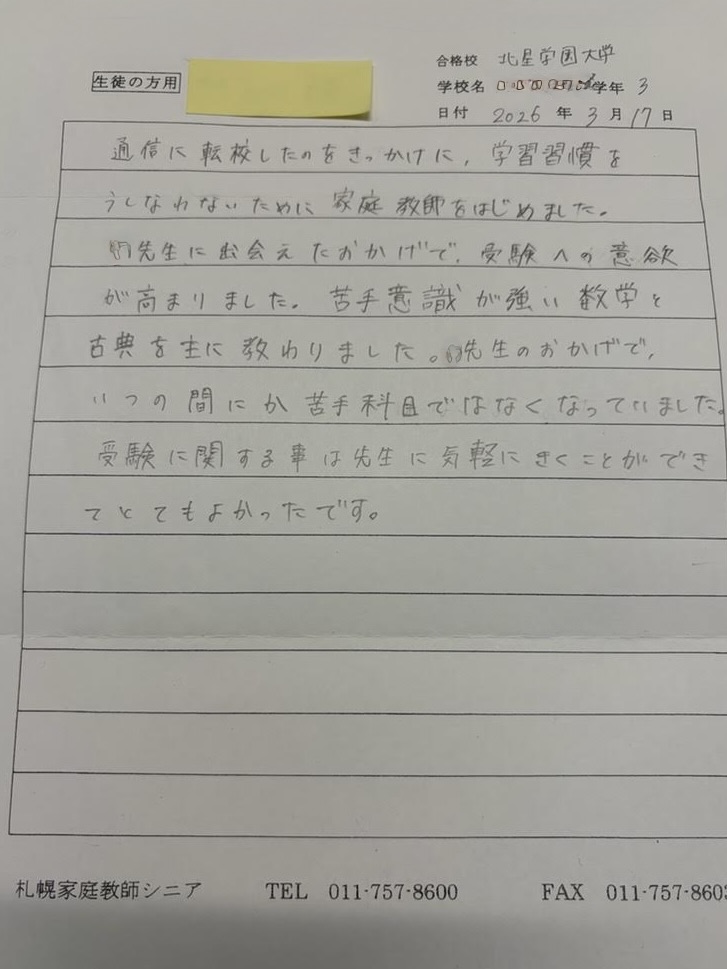 合格校 北星学園大学
生徒の方用
学校名 学年 3
日付 2026 年 3 月 17 日
通信に転校したのをきっかけに、学習習慣を
うしなわないために家庭教師をはじめました。
先生に出会えたおかげで、受験への意欲
が高まりました。苦手意識が強い数学と
古典を主に教わりました。先生のおかげで、
いつの間にか苦手科目ではなくなっていました。
受験に関する事は先生に気軽にきくことができ
てとてもよかったです。
札幌家庭教師シニア TEL 011-757-8600 FAX 011-757-8603